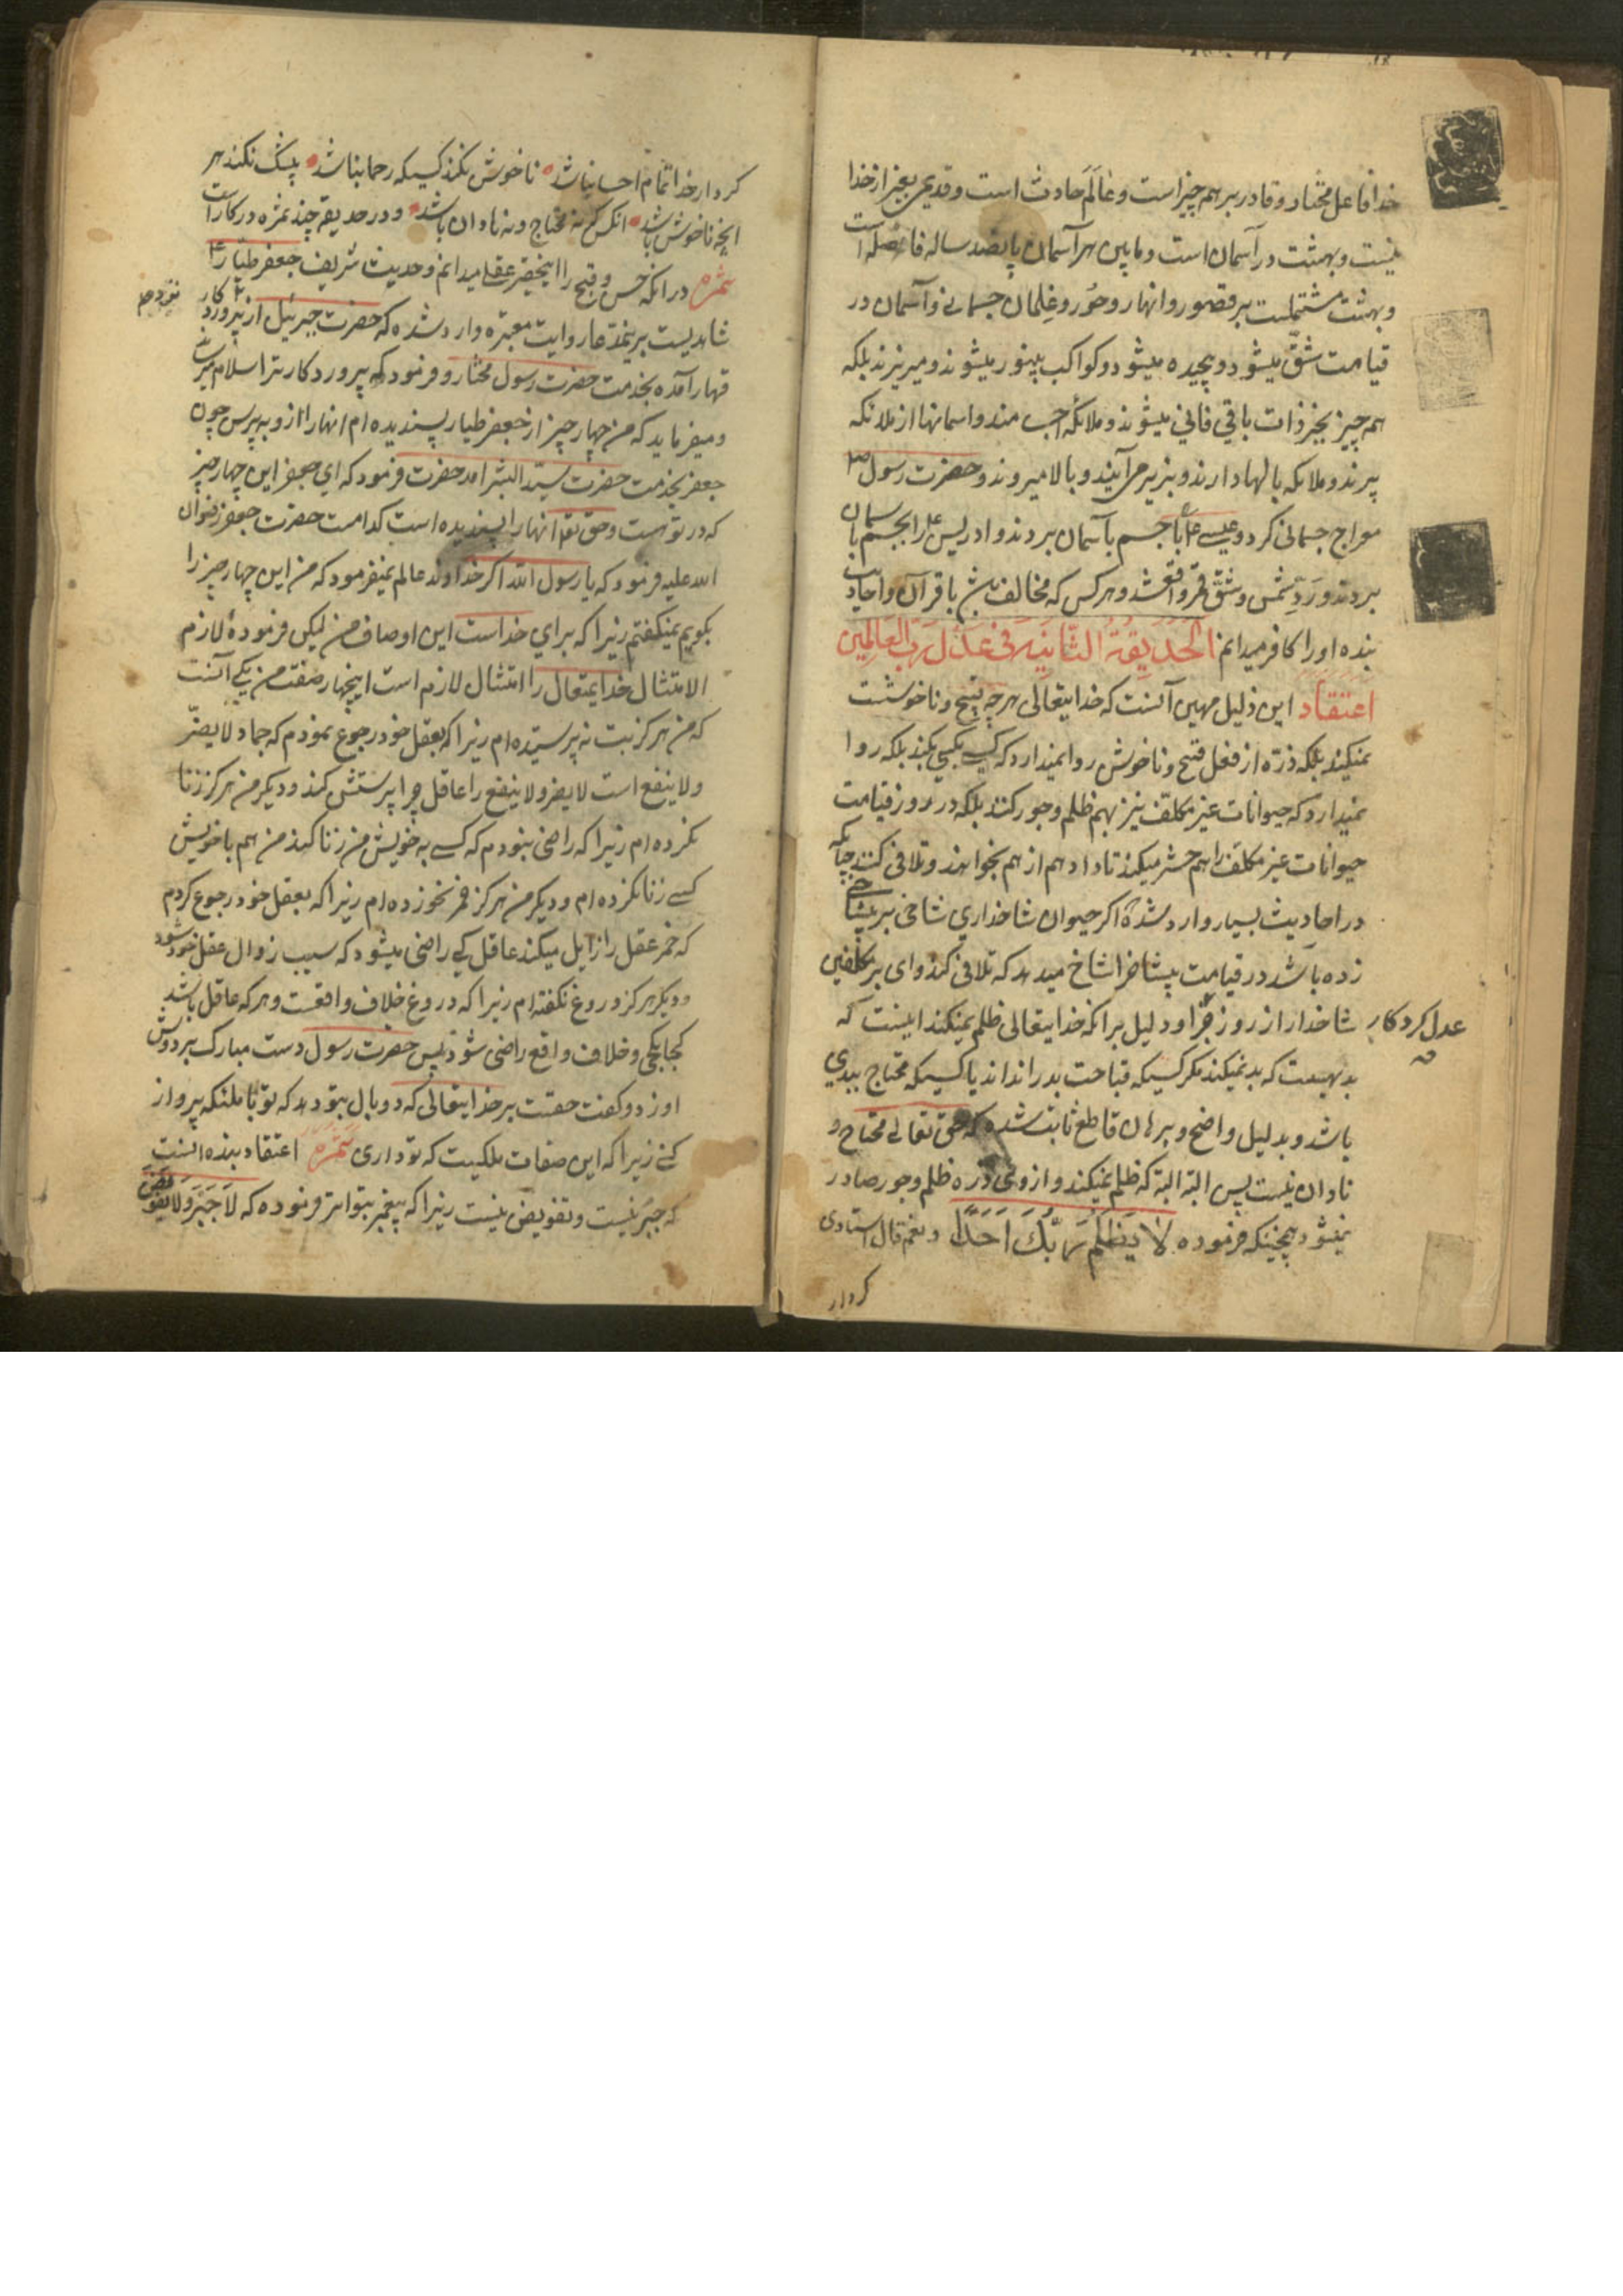 خدا فاعل مختار و قادر بر همه چیز است و عالَم حادث است و قدیمی بغیر از خدا
نیست و بهشت در آسمان است و مابین هر آسمان پانصد ساله فاصله است
و بهشت مشتملست بر قصور و انهار و حور و غِلمان جسمانی و آسمان در
قیامت شقّ میشود و پیچیده میشود و کواکب بینور میشوند و میریزند بلکه
همه چیز بجز ذات باقی فانی میشوند و ملائکه اجسامند و اسمانها از ملائکه
پرند و ملائکه بالها دارند و بزیر می آیند و بالا میروند و حضرت رسول ص
معراج جسمانی کرد و عیسی ع با جسم بآسمان بردند و ادریس ع را بجسم بآسمان
بردند و رَدّ شمس و شقّ قمر واقع شد و هر کس که مخالف باشد با قرآن و احادیث
بنده او را کافر میدانم الحَدیقَةُ الثّانیَه فی عَدلِ رَبِّ العالَمین
اعتقاد این ذلیل مهین آنست که خدایتعالی هر چه قبیح و ناخوشست
نمیکند بلکه ذرّه از فعل قبیح و ناخوش روا نمیدارد که کسی بکسی بکند بلکه روا
نمیدارد که حیوانات غیر مکلف نیز بهم ظلم و جور کنند بلکه در روز قیامت
حیوانات غیر مکلف را هم حشر میکند تا داد هم از هم بخواهند و تلافی کنند چنانکه
در احادیث بسیار وارد شده اگر حیوان شاخداری شاخی بر بیشاخی
زده باشد در قیامت بیشاخ را شاخ میدهد که تلافی کند وای بر مکلفین
شاخدار از روز جزا و دلیل برانکه خدایتعالی ظلم نمیکند اینست که
عدل کردکار
بدیهیست که بد نمیکند مکر کسیکه قباحت بد را نداند یا کسیکه محتاج ببدی
باشد و بدلیل واضح و برهان قاطع ثابت شده که حق تعالی محتاج و
نادان نیست پس البته البته که ظلم نمیکند و از وی ذره ظلم و جور صادر
نمیشود همچنانکه فرموده لا یَظلِمُ رَبُّكَ اَحَدًا و نعم قال استادی
کردار
کردار خدا تمام احسان باشد ناخوش نکند کسیکه رحمان باشد بیشک نکند هر
انچه ناخوش باشد انکس که نه محتاج و نه نادان باشد و در حدیقه چند ثمره در کار است
ثمره در انکه حسن و قبح را اینحقیر عقلی میدانم و حدیث شریف جعفر طیّار ع
شاهدیست بر ینمدّعا روایت معتبره وارد شده که حضرت جبرئیل از نزد پروردکار
قهار آمده بخدمت حضرت رسول مختار و فرمود که پروردکار ترا سلام میرساند
و میفرماید که من چهار چیز از جعفر طیار پسندیده ام انها را از و به پرس چون
جعفر بخدمت حضرت سیّد البشر امد حضرت فرمود که ای جعفر این چهار چیز
که در تو هست و حق تعا انها را پسندیده است کدامست حضرت جعفر رضوان
الله علیه فرمود که یا رسول الله اکر خداوند عالم نمیفرمود که من این چهار چیز را
بکویم نمیکفتم زیرا که برای خداست این اوصاف من لیکن فرمودهٔ لازم
الامتثال خدایمتعال را امتثال لازم است اینچهار صفت من یکی آنست
که من هرکز بت نه پرستیده ام زیرا که بعقل خود رجوع نمودم که جماد لا یضرّ
ولا ینفع است لا یضر ولا ینفع را عاقل چرا پرستش کند و دیکر من هرکز زنا
نکرده ام زیرا که راضی نبودم که کسی به خویش من زنا کند من هم با خویش
کسی زنا نکرده ام و دیکر من هرکز خمر نخورده ام زیرا که بعقل خود رجوع کردم
که خمر عقل را زایل میکند عاقل کی راضی میشود که سبب زوال عقل خود شود
و دیکر هرکز دروغ نکفته ام زیرا که دروغ خلاف واقعست و هر که عاقل باشد
کجا بکجی و خلاف واقع راضی شود پس حضرت رسول دست مبارک بر دوش
او زد و کفت حقست بر خدایتعالی که دو بال بتو دهد که تو با ملئکه پرواز
کنی زیرا که این صفات ملکیست که تو داری ثمره اعتقاد بنده انست
که جبر نیست و تفویض نیست زیرا که پیغمبر بتواتر فرموده که لا جَبرَ ولا تفویض